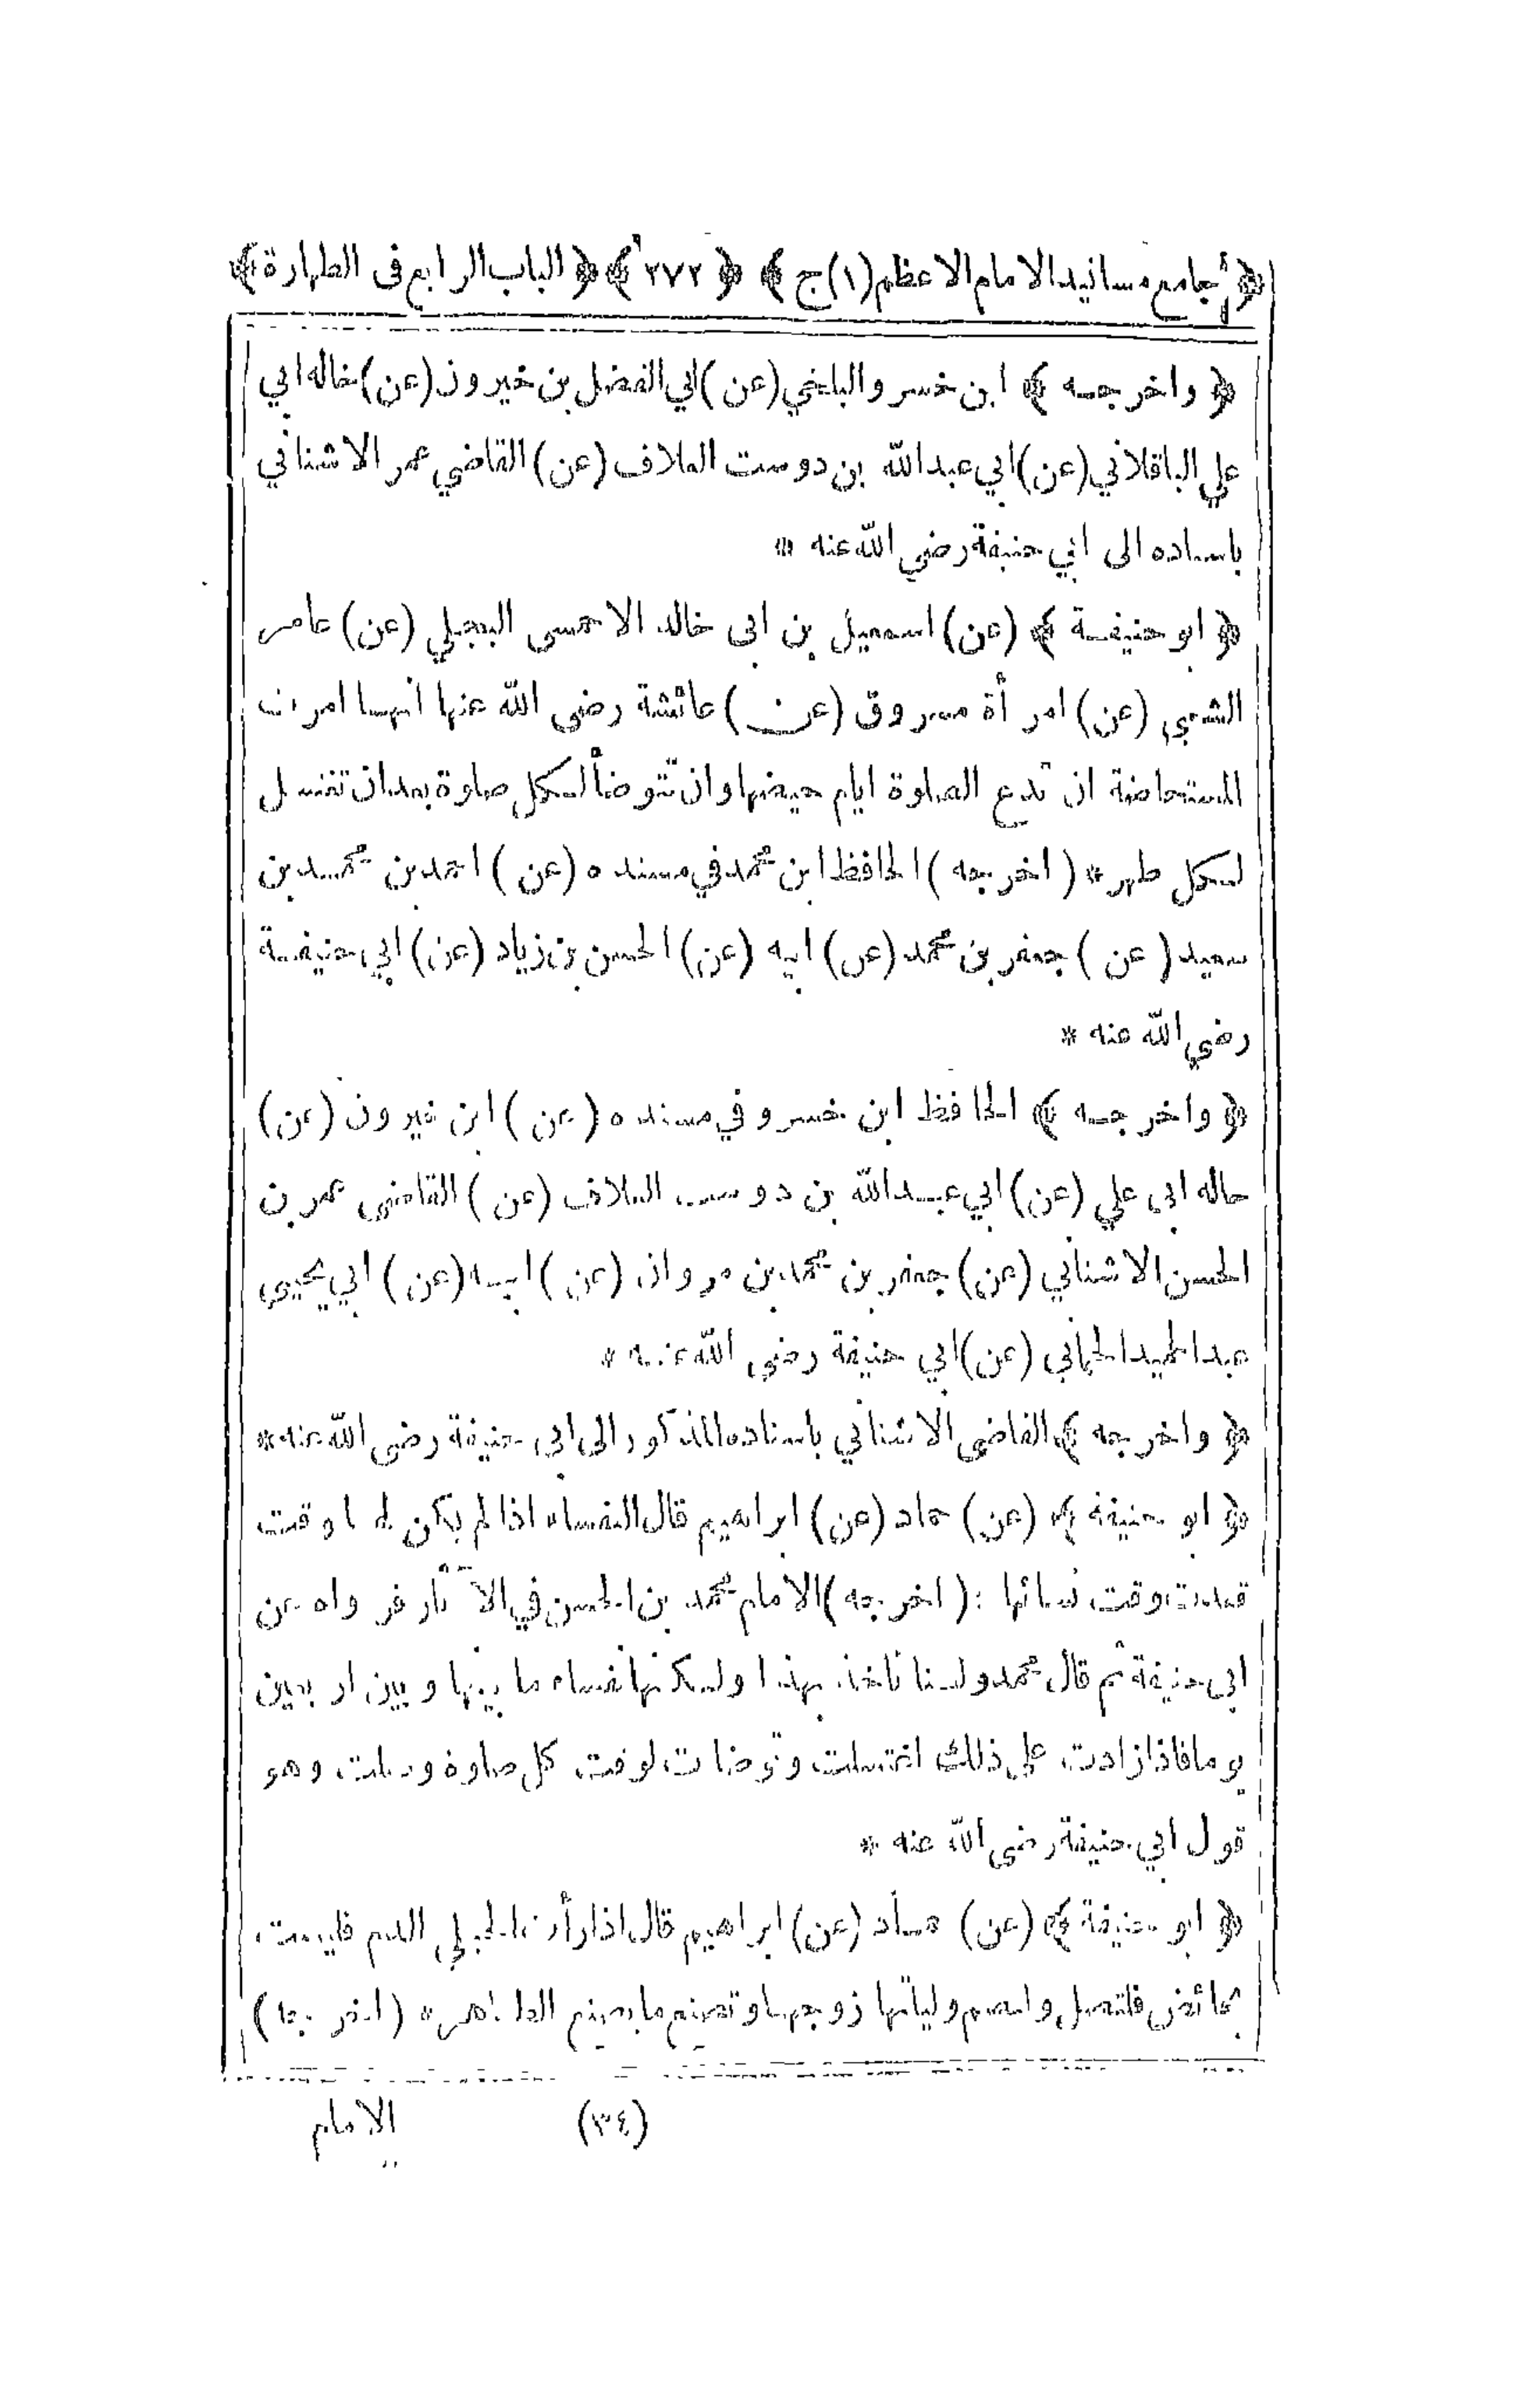 ﴿ جامع مسانيد الامام الاعظم (١) ج ﴾ ﴿ ٢٧٢ ﴾ ﴿ الباب الرابع فى الطهارة ﴾
﴿ واخرجه ﴾ ابن خسرو البلخي (عن) ابي الفضل بن خيرون (عن) خاله ابي
علي الباقلاني (عن) ابي عبد الله بن دوست العلاف (عن) القاضي عمر الاشناني
باسناده الى ابي حنيفة رضي الله عنه *
﴿ ابو حنيفة ﴾ (عن) اسمعيل بن ابى خالد الاحمسى البجلي (عن) عامر
الشعبي (عن) امرأة مسروق (عن) عائشة رضى الله عنها انها امرت
المستحاضة ان تدع الصلوة ايام حيضها وان تتوضأ لكل صلوة بعد ان تغتسل
لكل طهر * (اخرجه) الحافظ ابن محمد في مسنده (عن) احمد بن محمد بن
سعيد (عن) جعفر بن محمد (عن) ابيه (عن) الحسن بن زياد (عن) ابي حنيفة
رضي الله عنه *
﴿ واخرجه ﴾ الحافظ ابن خسرو في مسنده (عن) ابن خيرون (عن)
خاله ابى علي (عن) ابي عبد الله بن دوست العلاف (عن) القاضى عمر بن
الحسن الاشناني (عن) جعفر بن محمد بن مروان (عن) ابيه (عن) ابي يحيى
عبد الحميد الحماني (عن) ابي حنيفة رضى الله عنه *
﴿ واخرجه ﴾ القاضى الاشناني باسناده المذكور الى ابى حنيفة رضى الله عنه *
﴿ ابو حنيفة ﴾ (عن) حماد (عن) ابراهيم قال النفساء اذا لم يكن لها وقت
قعدت وقت نسائها * (اخرجه) الامام محمد بن الحسن في الآثار فرواه عن
ابى حنيفة ثم قال محمد ولسنا نأخذ بهذا ولكنها نفساء ما بينها وبين اربعين
يوما فاذا زادت على ذلك اغتسلت وتوضات لوقت كل صلوة وصلت وهو
قول ابي حنيفة رضى الله عنه *
﴿ ابو حنيفة ﴾ (عن) حماد (عن) ابراهيم قال اذا رأت الحبلى الدم فليست
بحائض فلتصل ولتصم وليأتها زوجها وتصنع ما يصنع الطاهر * (اخرجه)
(٣٤) الامام